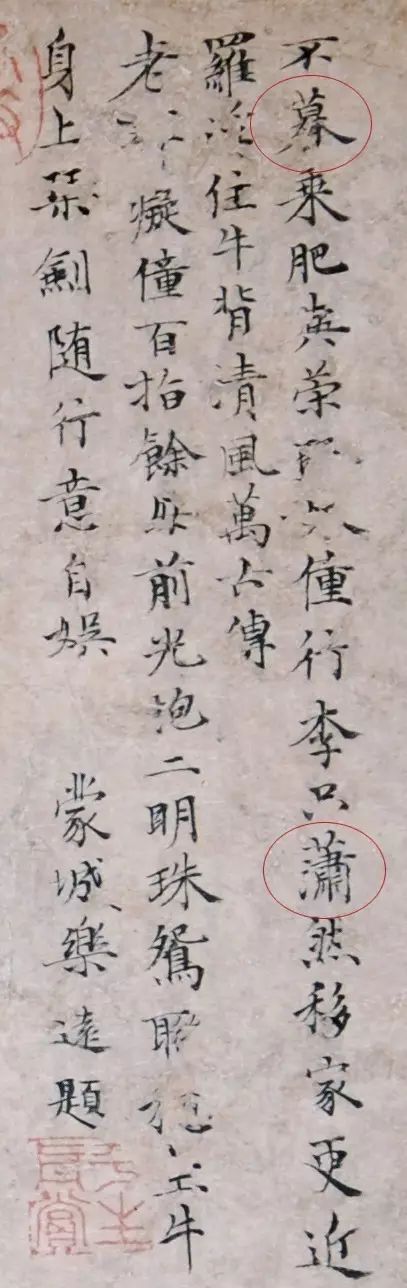 不慕乘肥與榮僮行李只蕭然移家更近
羅浮住牛背清風萬古傳
老癡僮百指餘前光泡二明珠鴛穩坐牛
身上琴劍随行意自娛　蒙城樂遠題